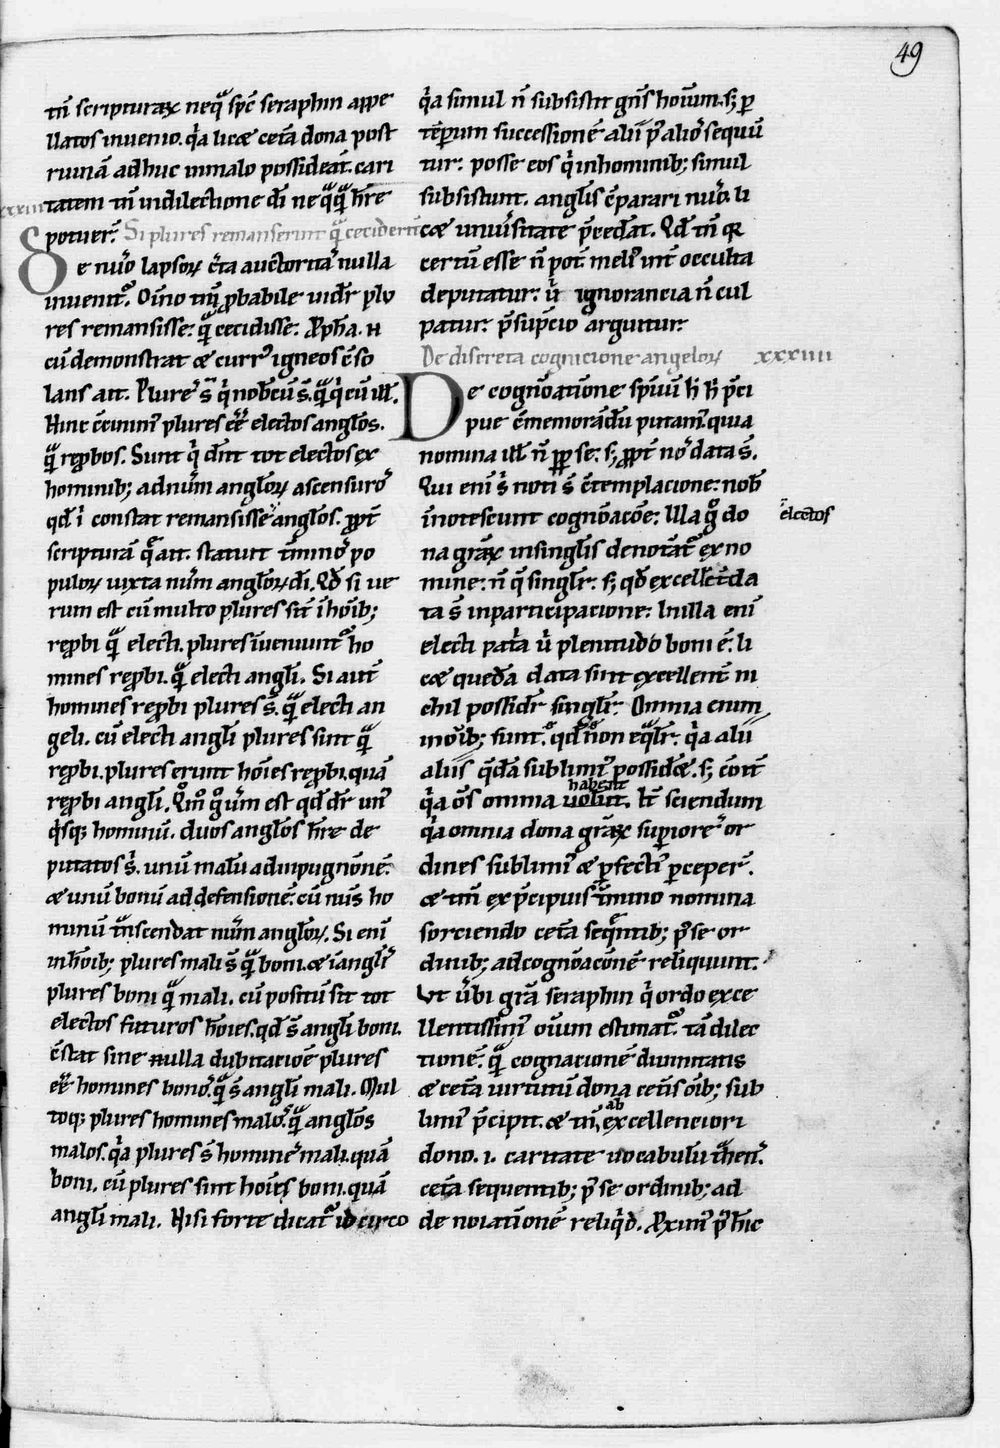 49
tam̄ scripturarꝝ neq̃ spc̄ seraphin appe
llatos inuenio. q̇a licæ cet̃a dona post
ruinā adhuc inmalo possideant̄. cari
tatem tam̄ indilectione dī neq̃q̃ hr̄e
potuer̄. Si plures remanserunt q̃ ceciderūt
xxxiii
De num̄o lapsorꝝ c̄ta auctoritas nulla
inuenit᷒. Om̄no tam̄ ꝓbabile uidet̄ plu
res remansisse: q̃ cecidisse: Ꝓph̄a. n
cū demonstrat æ currus igneos c̄so
lans ait. Plures s̄ q̇ nob̄cū s̄. q̃q̇ cū ill̄.
Hinc c̄iciunt plures eē̄ electos angl̄os.
q̃ reꝓbos. Sunt q̇ dn̄t tot electos ex
hominib; ad num̄ angl̄orꝝ ascensuros
qd̄ ī constat remansisse angl̄os. ꝓpt̄
scripturā q̃ ait. statuit t̄minos po
pulorꝝ iuxta num̄ angl̄orꝝ dī. Qd̄ si ue
rum est cū multo plures sīt ī hōib;
reꝓbi q̃ electi. plures īueniunt᷒ ho
mines reꝓbi. q̃ electi angl̄i. Si aut̄
homines reꝓbi plures s̄. q̃ electi an
geli. cū electi angl̄i plures sint q̃
reꝓbi. plures erunt hoīes reꝓbi. quā
reꝓbi angl̄i. Qm̄ g᷒ uerum est qd̄ dr̄ un᷒
q̇sq; hominū. duos angl̄os hr̄e de
putatos s᷒. unū malū ad inpugn̄onē:
æ unū bonū ad defensionē: cū num̄s ho
minū t̄nscendat num̄ angl̄orꝝ. Si enī
inhōib; plures mali s̄ q̃ boni. æ ī angl̄is
plures boni q̃ mali. cū positū sit tot
electos futuros hoīes. qd̄ s̄ angl̄i boni.
c̄stat sine nulla dubitacioē plures
eē̄ homines bonos. q̃ s̄ angl̄i mali. Mul
toq; plures homines malos. q̃ angl̄os
malos. q̇a plures s̄ homines mali. quā
boni. cū plures sint hoīes boni. quā
angl̄i mali. Nisi forte dicat᷒ idcirco
q̇a simul n̄ subsistit gn̄s hoīum. s; ꝑ
tēporum successionē alii p᷒ alios sequū
tur: posse eos q̇ inhominib; simul
subsistunt. angl̄is c̄parari num̄o. li
cæ uniūsitate p̄cedāt. Qd̄ tam̄ qꝛ
certū esse n̄ pot̄. meli᷒ int̄ occulta
deputatur: ū ignorancia n̄ cul
patur: p̄supcio arguitur:
De discreta cognicione angelorꝝ xxxiiii
De cogn̄oatione spirituū h̄ h̄ p̄ci
pue c̄memorādū putam᷒. quia
nomina ill̄ n̄ ꝓp se: s; ꝓpt̄ nos data s̄.
Qui enī s᷒ noti s̄ c̄templacione: nob̄
īnotescunt cogn̄oacōe: Illa g᷒ do
ēlectos
na grārꝝ insingl̄is denotāt᷒ ex no
mine: n̄ q̄ singl̄r: s; qd̄ excellēt̄ da
ta s̄ inparticipacione: Inilla enī
electi pat̄a ū plenitudo boni ē. li
cæ quedā data sint excellent̄ ni
chil possidet̄ singl̄r: Omnia enim
inoīb; sunt: qd̄ non eq̄lr: q̇a alii
aliis q̄dā sublimi᷒ possidæ. s; com̄t
habent
q̇a om̄s omnia uolūt. h̄t sciendum
q̇a omnia dona grārꝝ superiores or
dines sublimi᷒ æ ꝑfecti᷒ ꝑceper̄.
æ tam̄ ex p̄cipuis t̄mino nomina
sorciendo cet̃a seq̃ntib; p᷒ se or
dinib; ad cogn̄oacōnē reliquunt:
Ut ūbi grā seraphin q̇ ordo exce
llentissim᷒ oīum estimat᷒. tā dilec
tionē. q̃ cognacionē diuinitatis
æ cet̃a uirtutū dona cet̄is oīb; sub
limi᷒ p̄cipit. æ tam̄ ab excellenciori
dono. i. caritate uocabulū t̄hens.
cet̃a sequentib; p᷒ se ordinib; ad
denotationē reliq̇d. Ꝓxim᷒ p᷒ hunc